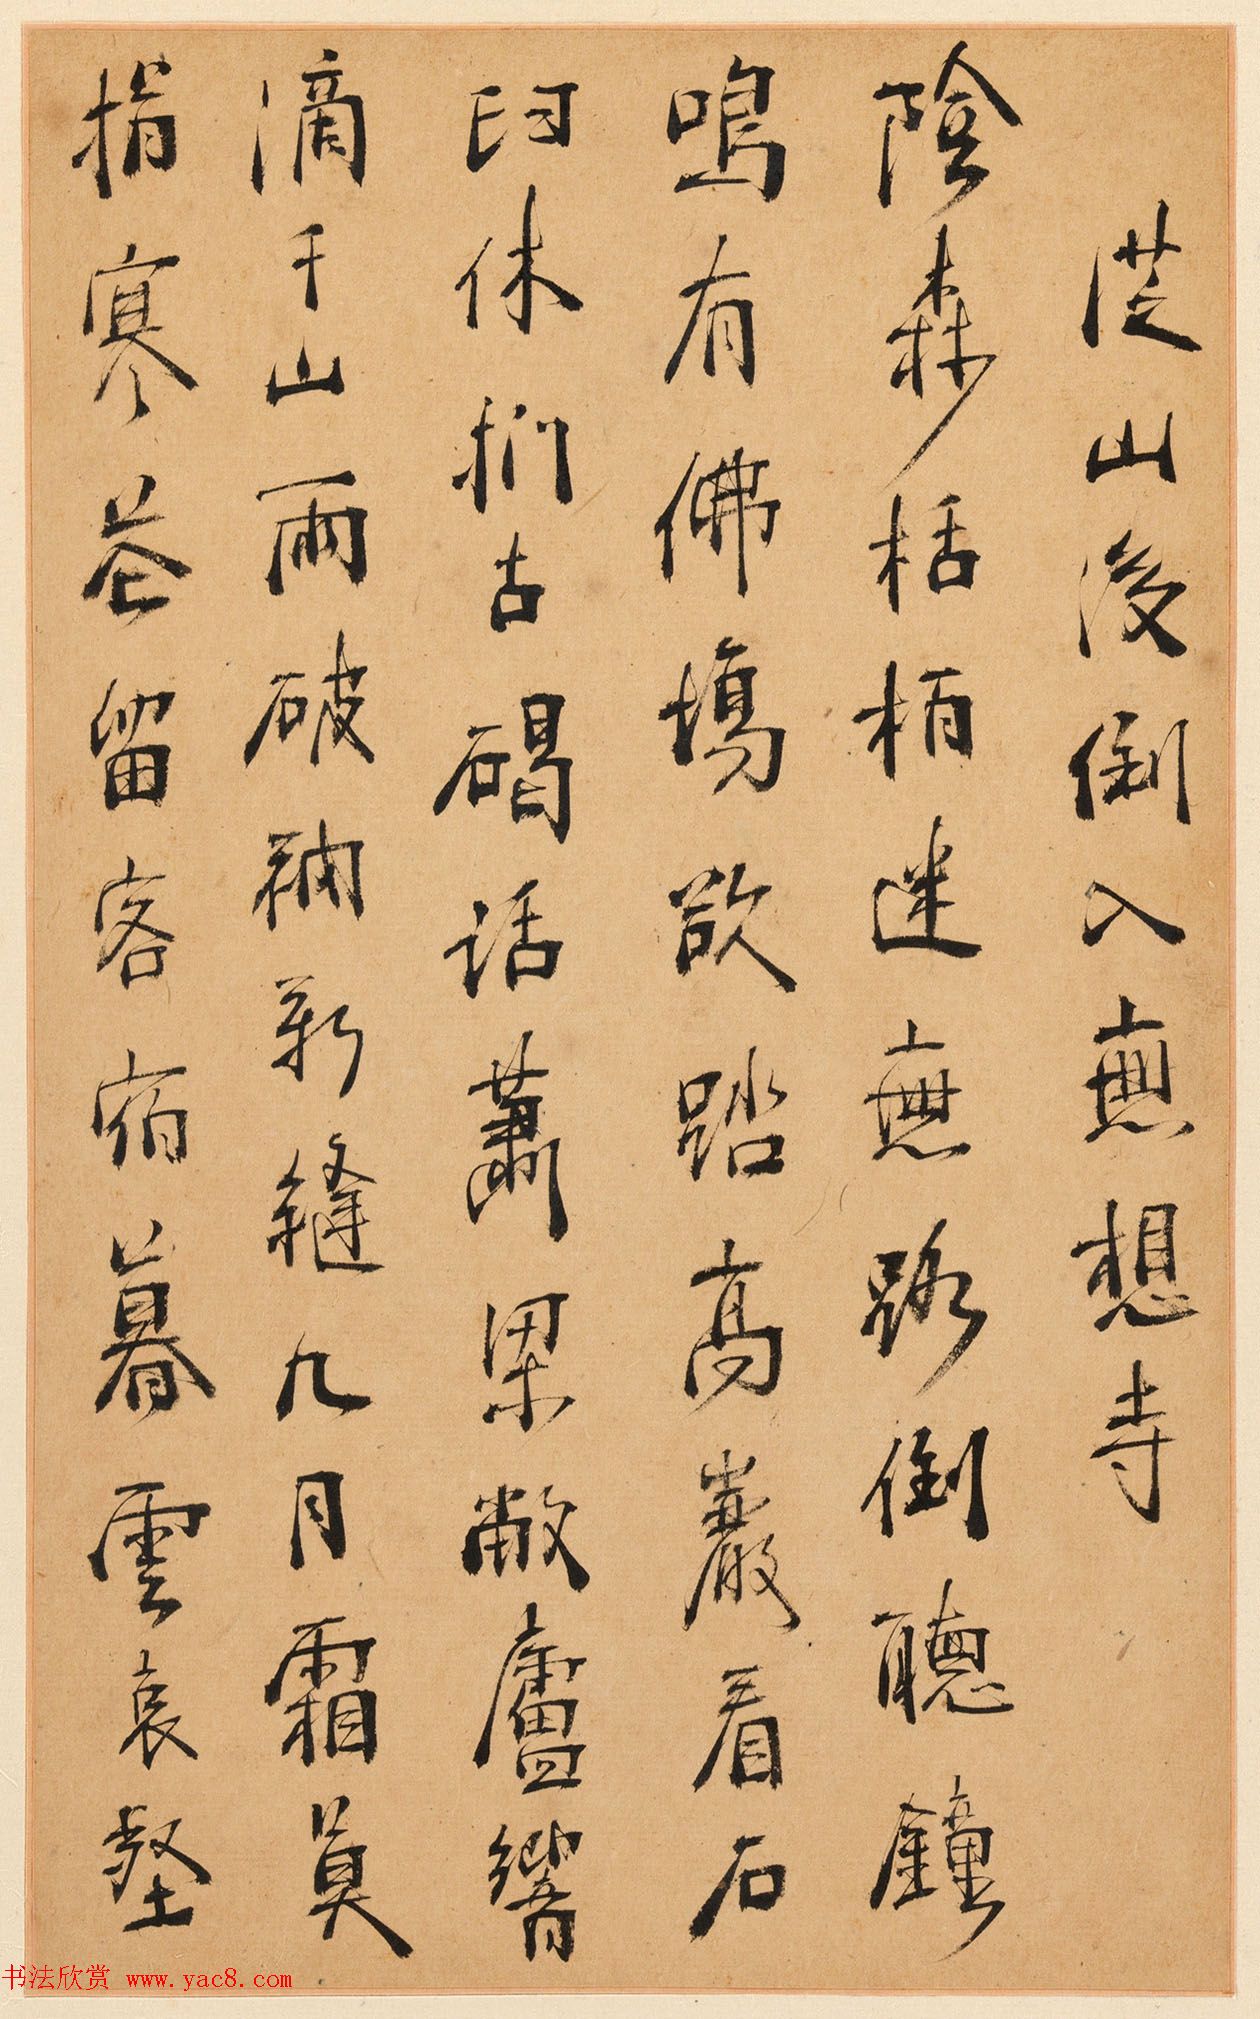 從山後倒入無想寺
陰森栝柏迷無路倒聽鐘
鳴有佛場欲踏高巖看石
臼休捫古碣話蕭梁敝廬響
滴千山雨破衲新縫九月霜莫
寒留客宿暮雲哀壑
书法欣赏 www.yac8.com